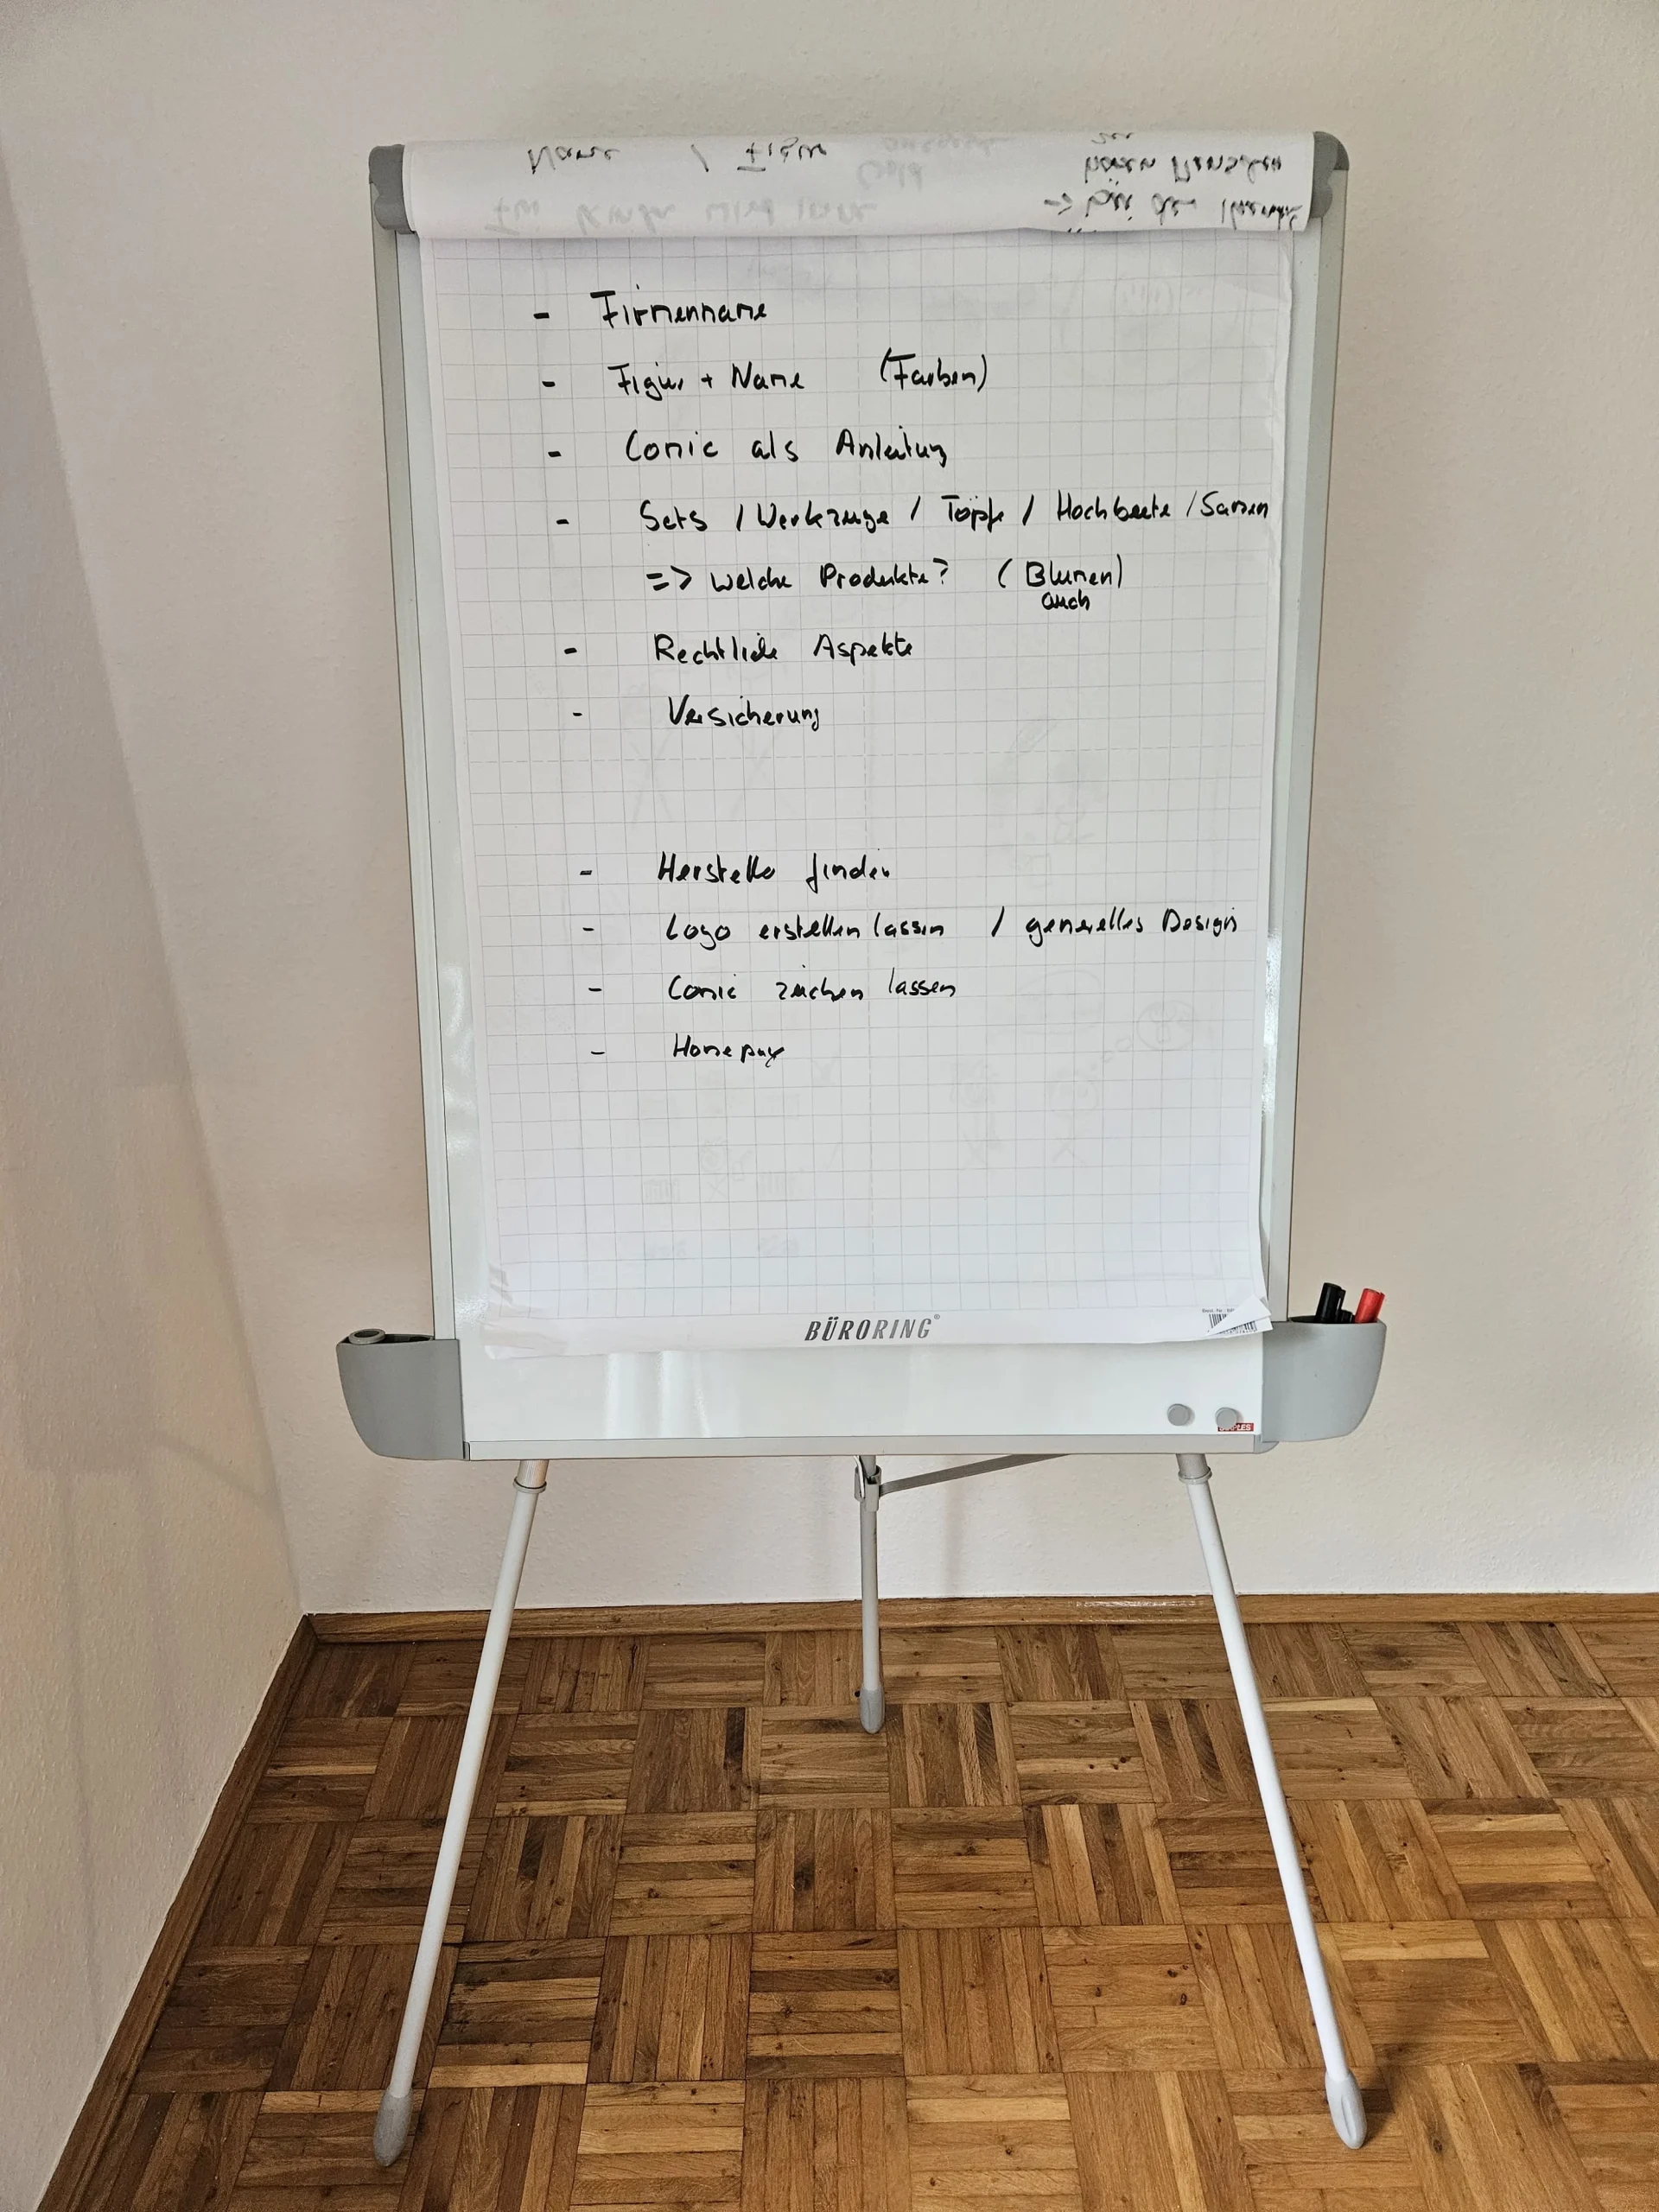 Name / Figur
- Firmenname
- Figur + Name (Farben)
- Comic als Anleitung
- Sets / Werkzeuge / Töpfe / Hochbeete / Samen
=> welche Produkte? (Blumen)
auch
- Rechtliche Aspekte
- Versicherung
- Hersteller finden
- Logo erstellen lassen / generelles Design
- Comic zeichen lassen
- Homepage
BÜRORING®